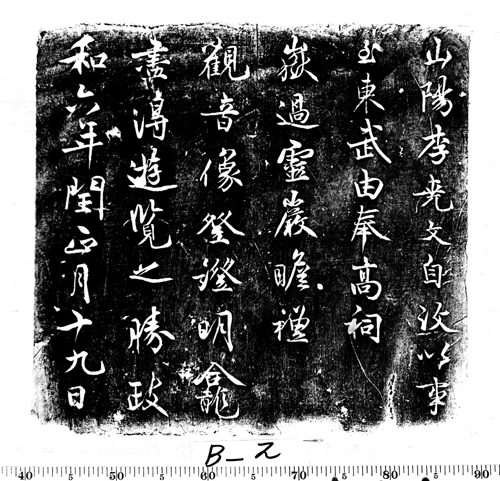 山陽李堯文自汶以事
至東武由奉高祠
嶽過靈巖瞻禮
觀音像登證明龕
盡得遊覽之勝政
和六年閏正月十九日
B-元
40 50 60 70 80 90